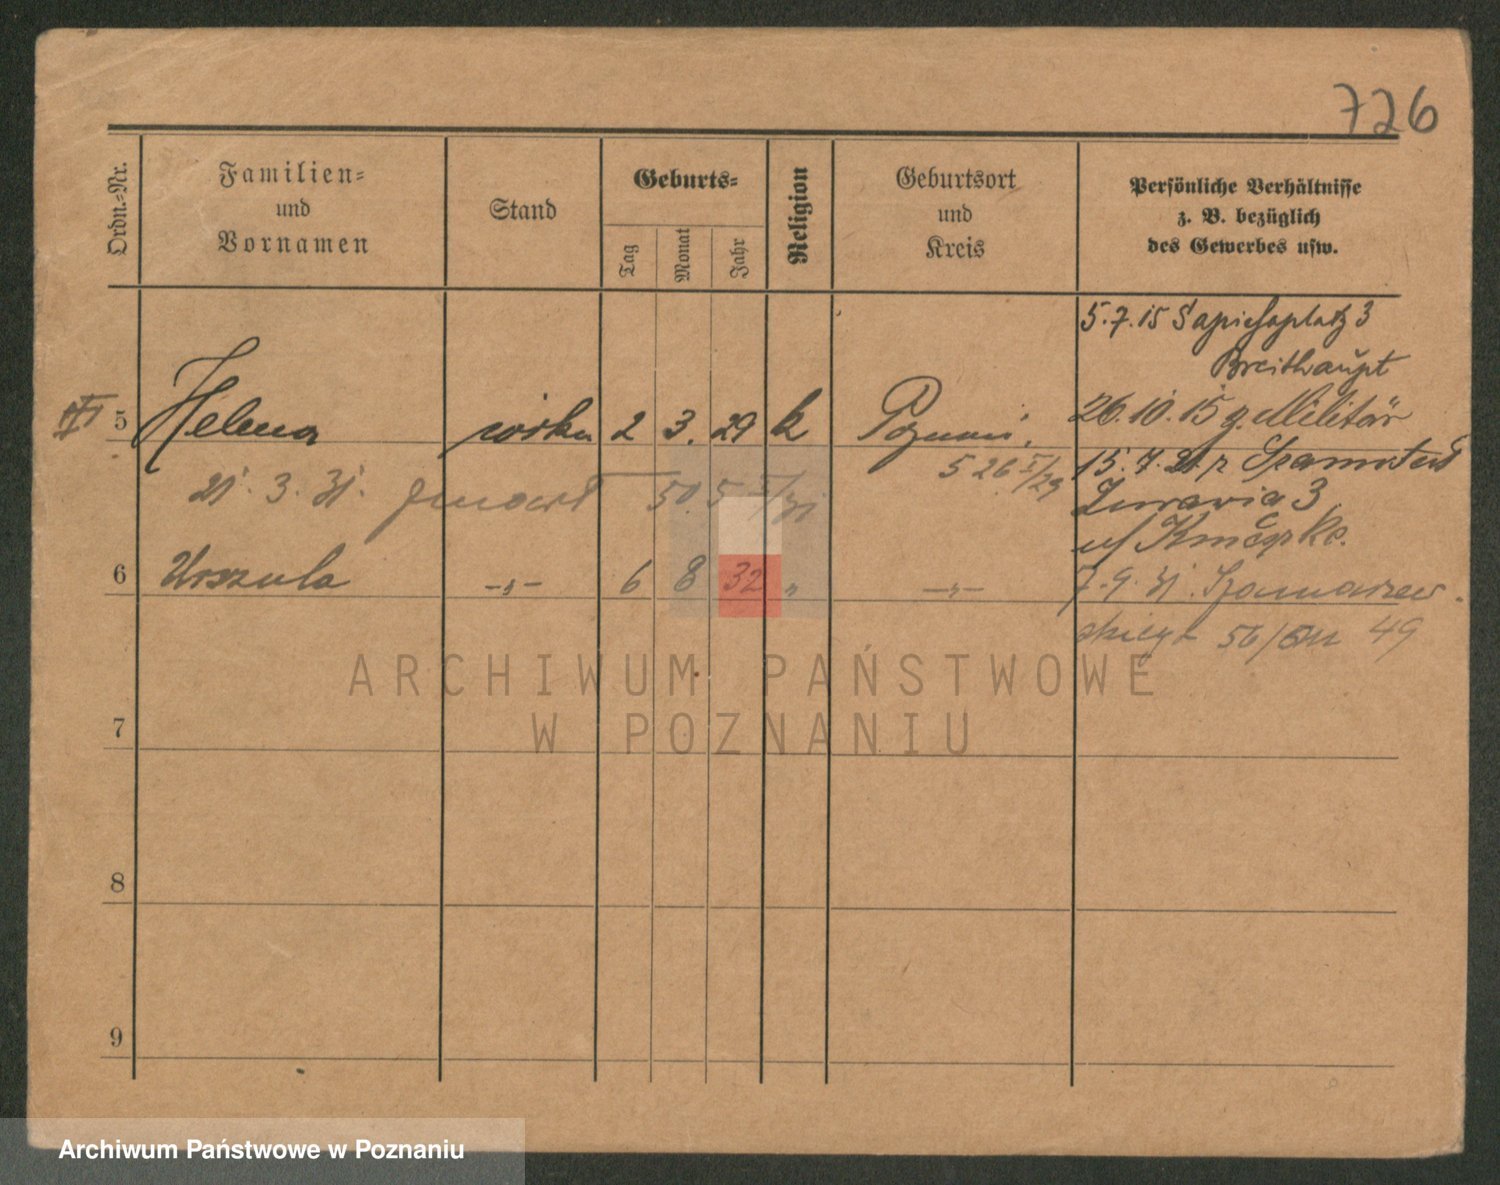 726
Ordn.-Nr.
Familien-
und
Vornamen
Stand
Geburts-
Tag
Monat
Jahr
Religion
Geburtsort
und
Kreis
Persönliche Verhältnisse
z. B. bezüglich
des Gewerbes usw.
5.7.15 Sapiehaplatz 3
Breithaupt
26.10.15 z. Militär
5 Helena córka 2 3. 29 k Poznań.
15.7.21
3
21. 3. 31. 50. 5 V/31
5 26 V/29
6 Urszula -„- 6 8 32 „ -„-
7.9.31. Szamarzew-
skiego 56/ 49
7
8
9
ARCHIWUM PAŃSTWOWE
W POZNANIU
Archiwum Państwowe w Poznaniu